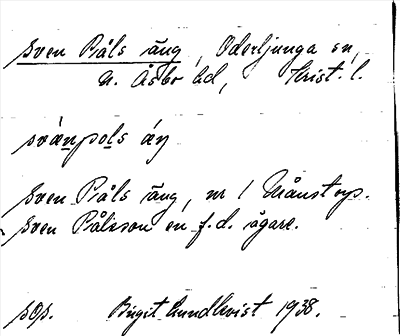 Sven Påls äng, Oderljunga sn,
N. Åsbo hd, Krist. l.
svänpols áŋ
Sven Påls äng, nr 1 Månstorp.
Sven Pålsson en f.d. ägare.
Birgit Lundkvist 1938.